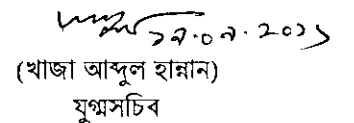 ২৭.০৭.২০২১
(খাজা আব্দুল হান্নান)
যুগ্মসচিব